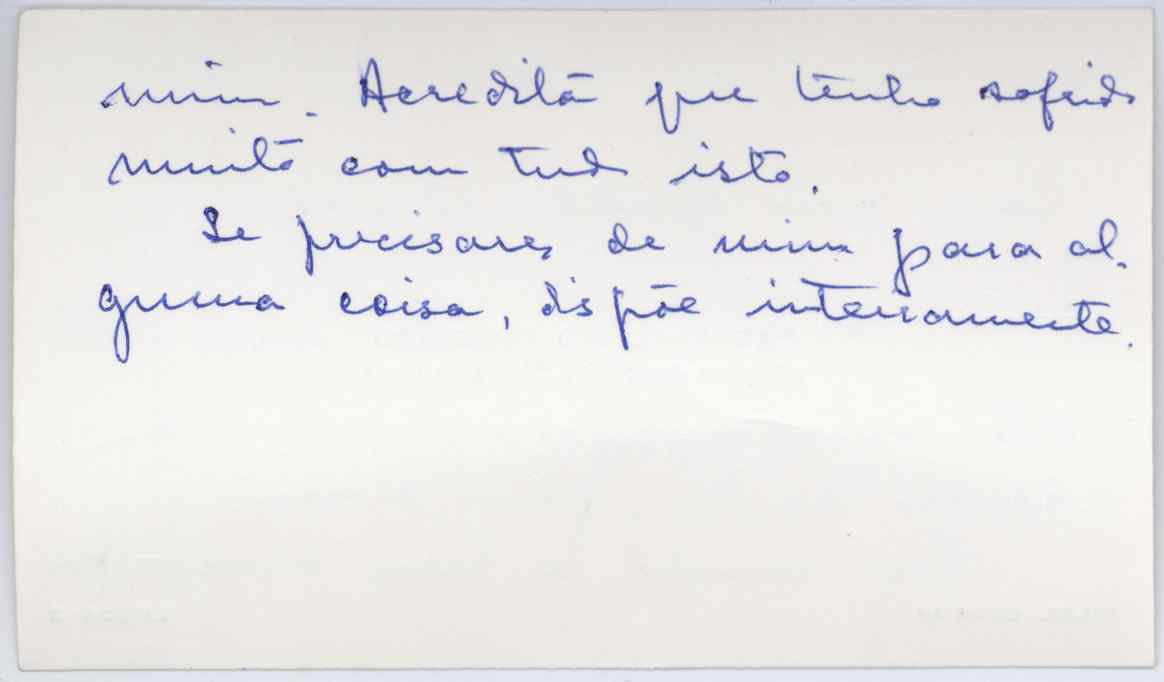 mim. Acredita que tenho sofrido
muito com tudo isto.
Se precisares de mim para al-
guma coisa, dispõe inteiramente.